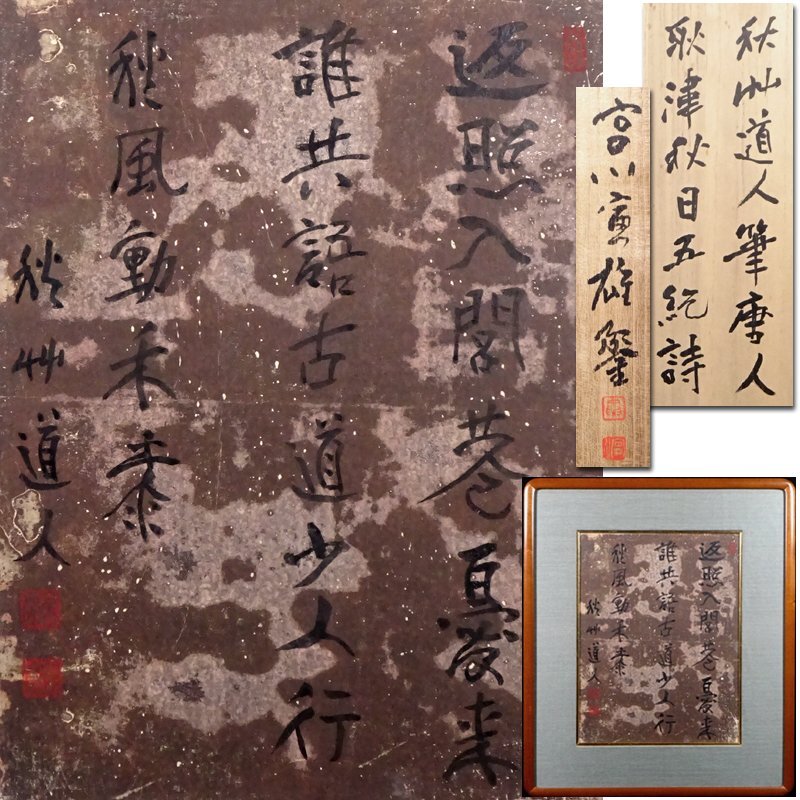 返照入閭巷憂来
誰共語古道少人行
秋風動禾黍
秋艸道人
秋艸道人筆唐人
耿湋秋日五絶詩
宮川寅雄鑒
返照入閭巷憂来
誰共語古道少人行
秋風動禾黍
秋艸道人